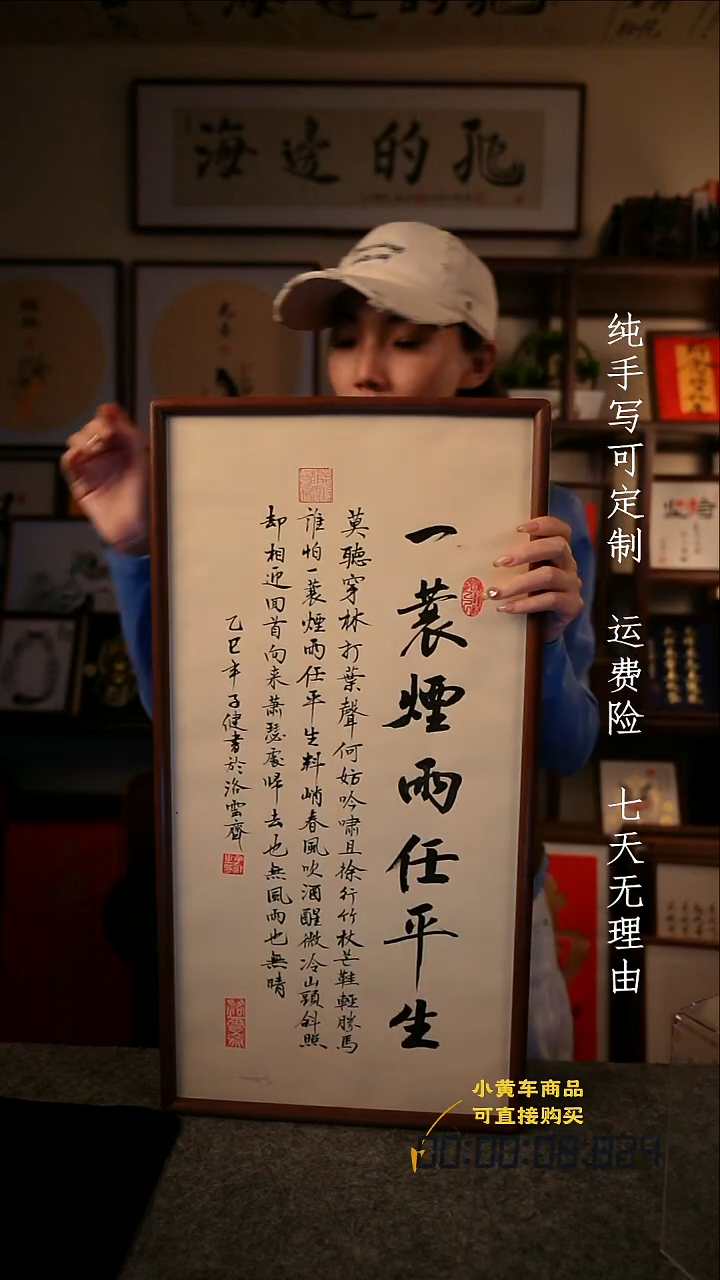 海邊的
一蓑煙雨任平生
莫聽穿林打葉聲何妨吟嘯且徐行竹杖芒鞋輕勝馬
誰怕一蓑煙雨任平生料峭春風吹酒醒微冷山頭斜照
却相迎回首向來蕭瑟處歸去也無風雨也無晴
乙巳年子健書於洛雲齋
纯手写可定制 运费险 七天无理由
小黄车商品
可直接购买